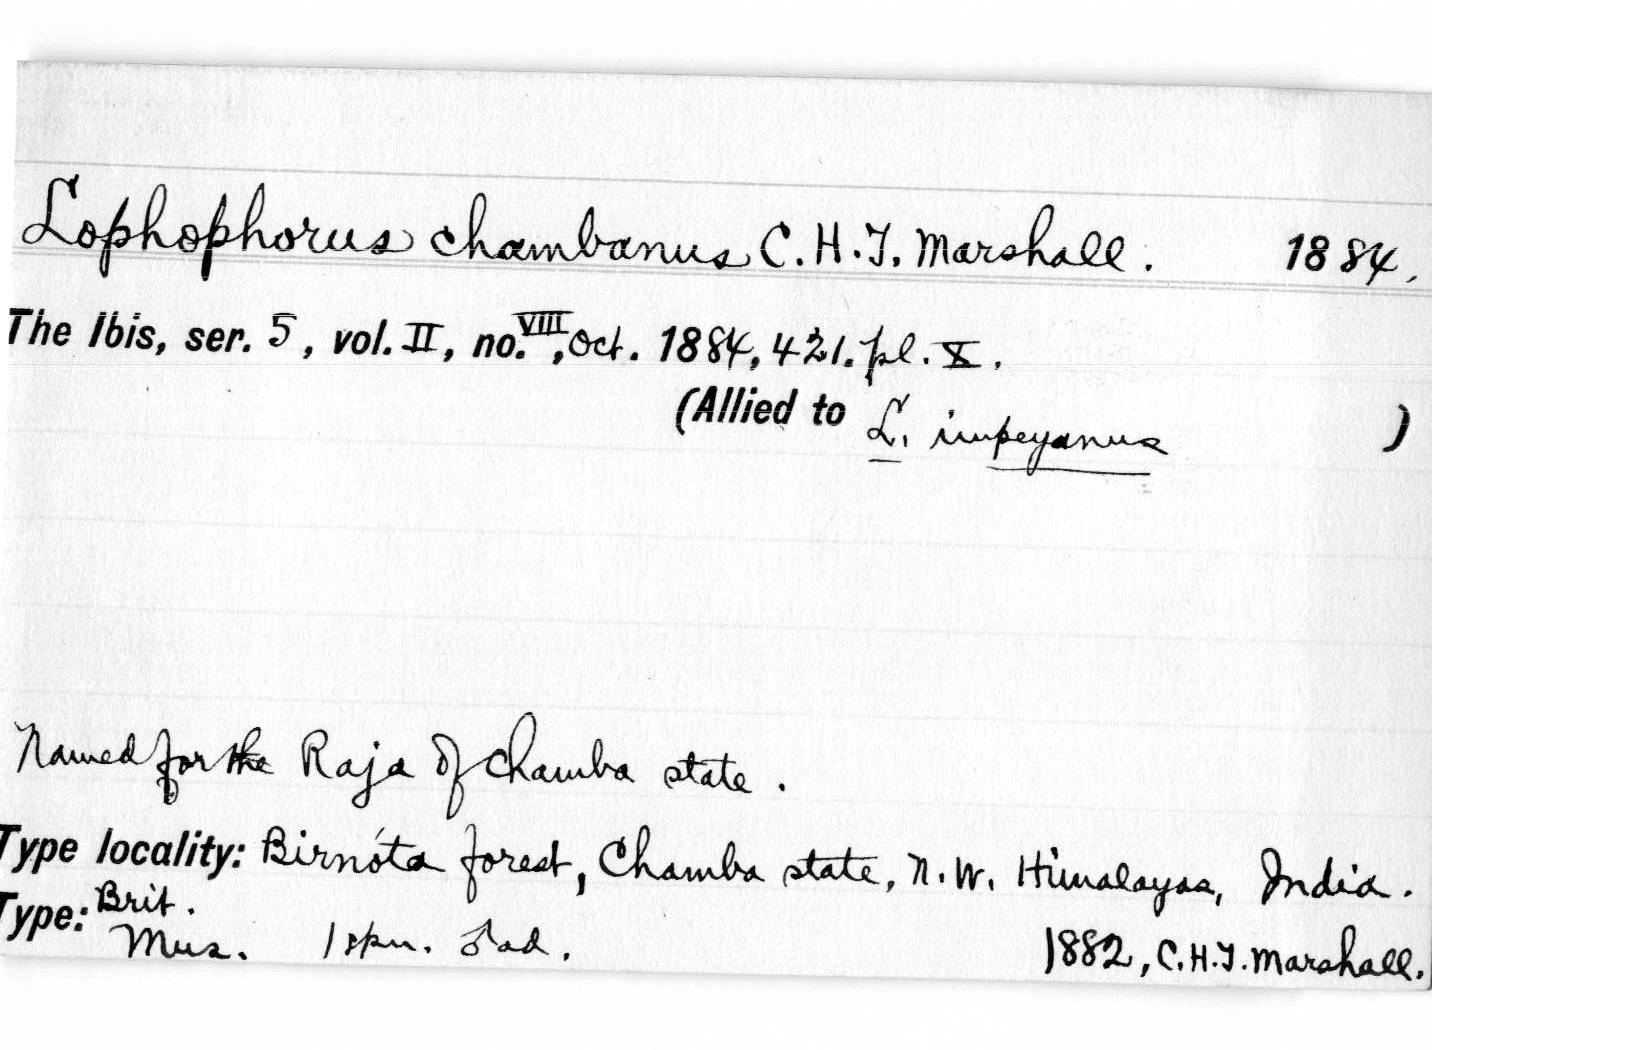 Lophophorus chambanus C. H. T. Marshall. 1884.
The Ibis, ser. 5, vol. II, no. VIII, Oct. 1884, 421. pl. X.
(Allied to L. impeyanus )
Named for the Raja of Chamba state.
Type locality: Birnóta forest, Chamba state, N. W. Himalayas, India.
Type: Brit.
Mus. 1 spn. ♂ ad. 1882, C. H. T. Marshall.